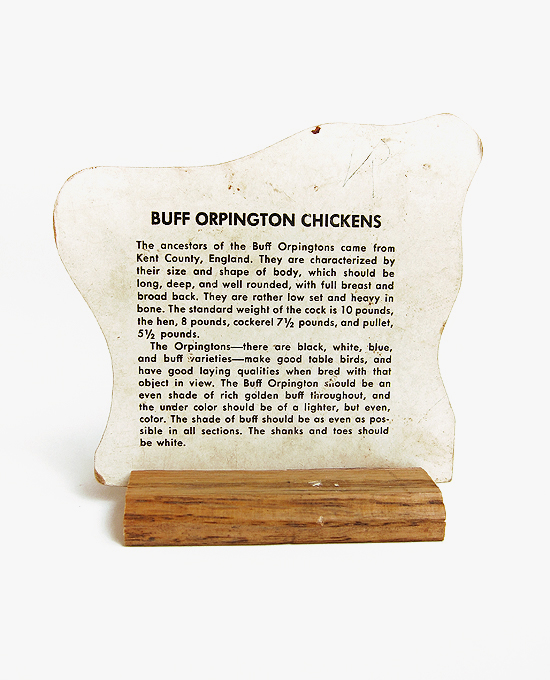 BUFF ORPINGTON CHICKENS
The ancestors of the Buff Orpingtons came from
Kent County, England. They are characterized by
their size and shape of body, which should be
long, deep, and well rounded, with full breast and
broad back. They are rather low set and heavy in
bone. The standard weight of the cock is 10 pounds,
the hen, 8 pounds, cockerel 7½ pounds, and pullet,
5½ pounds.
The Orpingtons—there are black, white, blue,
and buff varieties—make good table birds, and
have good laying qualities when bred with that
object in view. The Buff Orpington should be an
even shade of rich golden buff throughout, and
the under color should be of a lighter, but even,
color. The shade of buff should be as even as pos-
sible in all sections. The shanks and toes should
be white.